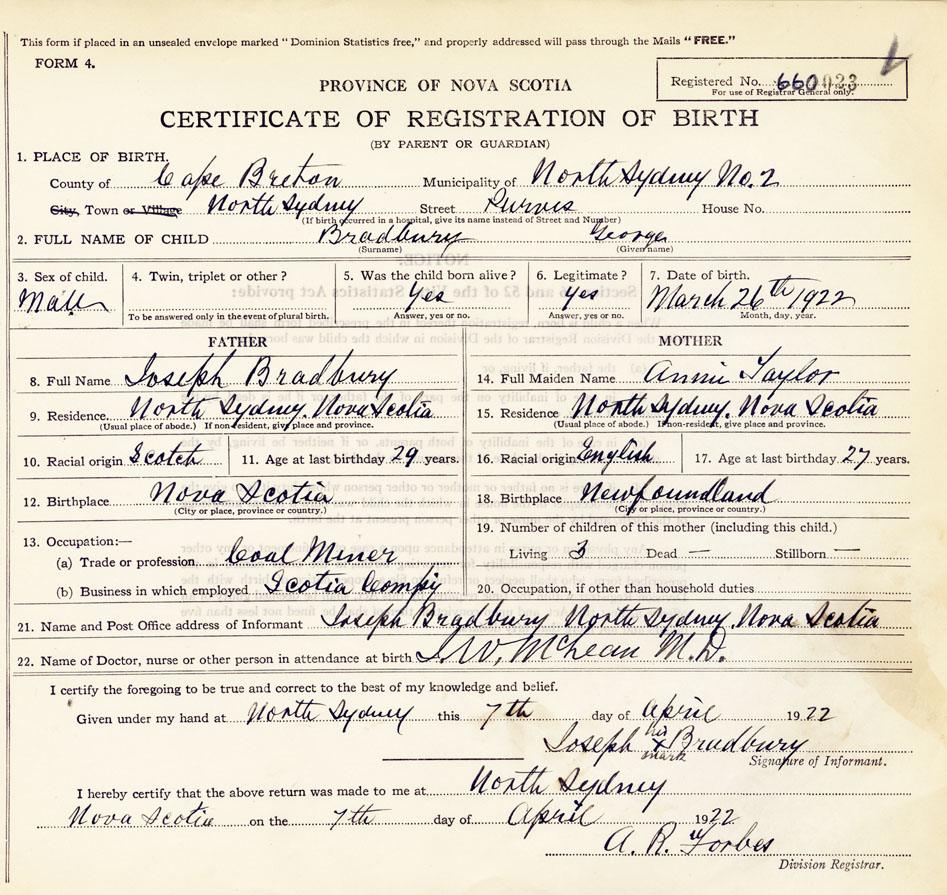 This form if placed in an unsealed envelope marked "Dominion Statistics free," and properly addressed will pass through the Mails "FREE."
FORM 4.
Registered No. 660023
For use of Registrar General only.
PROVINCE OF NOVA SCOTIA
CERTIFICATE OF REGISTRATION OF BIRTH
(BY PARENT OR GUARDIAN)
1. PLACE OF BIRTH.
County of Cape Breton Municipality of North Sydney No. 2
City, Town or Village North Sydney Street Purves House No.
(If birth occurred in a hospital, give its name instead of Street and Number)
2. FULL NAME OF CHILD Bradbury George
(Surname) (Given name)
3. Sex of child. 4. Twin, triplet or other? 5. Was the child born alive? 6. Legitimate? 7. Date of birth.
Male Yes Yes March 26th 1922
To be answered only in the event of plural birth. Answer, yes or no. Answer, yes or no. Month, day, year.
FATHER
8. Full Name Joseph Bradbury
9. Residence. North Sydney. Nova Scotia
(Usual place of abode.) If non-resident, give place and province.
10. Racial origin Scotch 11. Age at last birthday 29 years.
12. Birthplace Nova Scotia
(City or place, province or country.)
13. Occupation:—
(a) Trade or profession Coal Miner
(b) Business in which employed Scotia Compy
MOTHER
14. Full Maiden Name Annie Taylor
15. Residence North Sydney. Nova Scotia
(Usual place of abode.) If non-resident, give place and province.
16. Racial origin English 17. Age at last birthday 27 years.
18. Birthplace Newfoundland
(City or place, province or country.)
19. Number of children of this mother (including this child.)
Living 3 Dead — Stillborn —
20. Occupation, if other than household duties
21. Name and Post Office address of Informant Joseph Bradbury North Sydney. Nova Scotia
22. Name of Doctor, nurse or other person in attendance at birth. McLean M.D.
I certify the foregoing to be true and correct to the best of my knowledge and belief.
Given under my hand at North Sydney this 7th day of April 1922
Joseph his x mark Bradbury
Signature of Informant.
I hereby certify that the above return was made to me at North Sydney
Nova Scotia on the 7th day of April 1922
A. R. Forbes
Division Registrar.